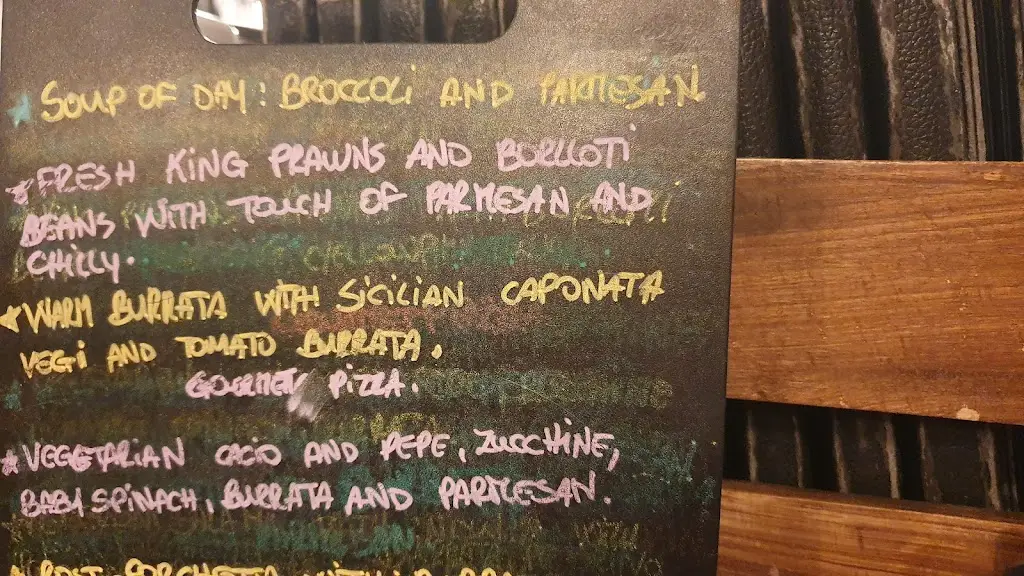 SOUP OF DAY: BROCCOLI AND PARMESAN.
FRESH KING PRAWNS AND BORLLOTI
BEANS WITH TOUCH OF PARMESAN AND
CHILLY.
WARM BURRATA WITH SICILIAN CAPONATA
VEGI AND TOMATO BURRATA.
GOURMET PIZZA.
VEGETARIAN CACIO AND PEPE, ZUCCHINE,
BABY SPINACH, BURRATA AND PARMESAN.